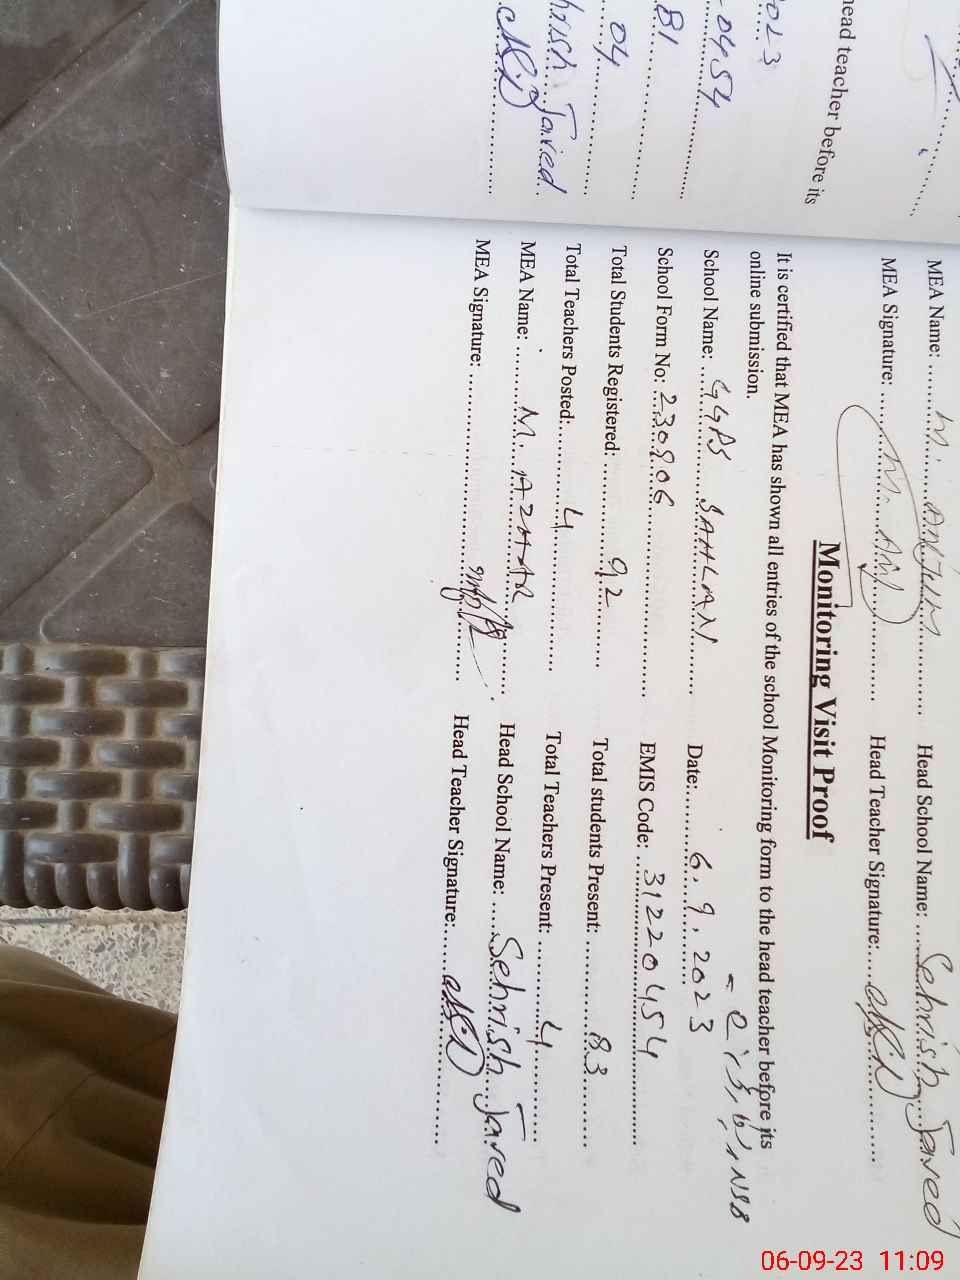 MEA Name: M. ANJUM Head School Name: Sehrish Javed
MEA Signature: Head Teacher Signature:
Monitoring Visit Proof
It is certified that MEA has shown all entries of the school Monitoring form to the head teacher before its
online submission.
NSB
School Name: GGPS SAHLAN Date: 6.9.2023
School Form No: 230906 EMIS Code: 31220454
Total Students Registered: 92 Total students Present: 83
Total Teachers Posted: 4 Total Teachers Present: 4
MEA Name: M. AZHAR Head School Name: Sehrish Javed
MEA Signature: Head Teacher Signature:
head teacher before its
023
0454
81
04
hrish Javed
06-09-23 11:09